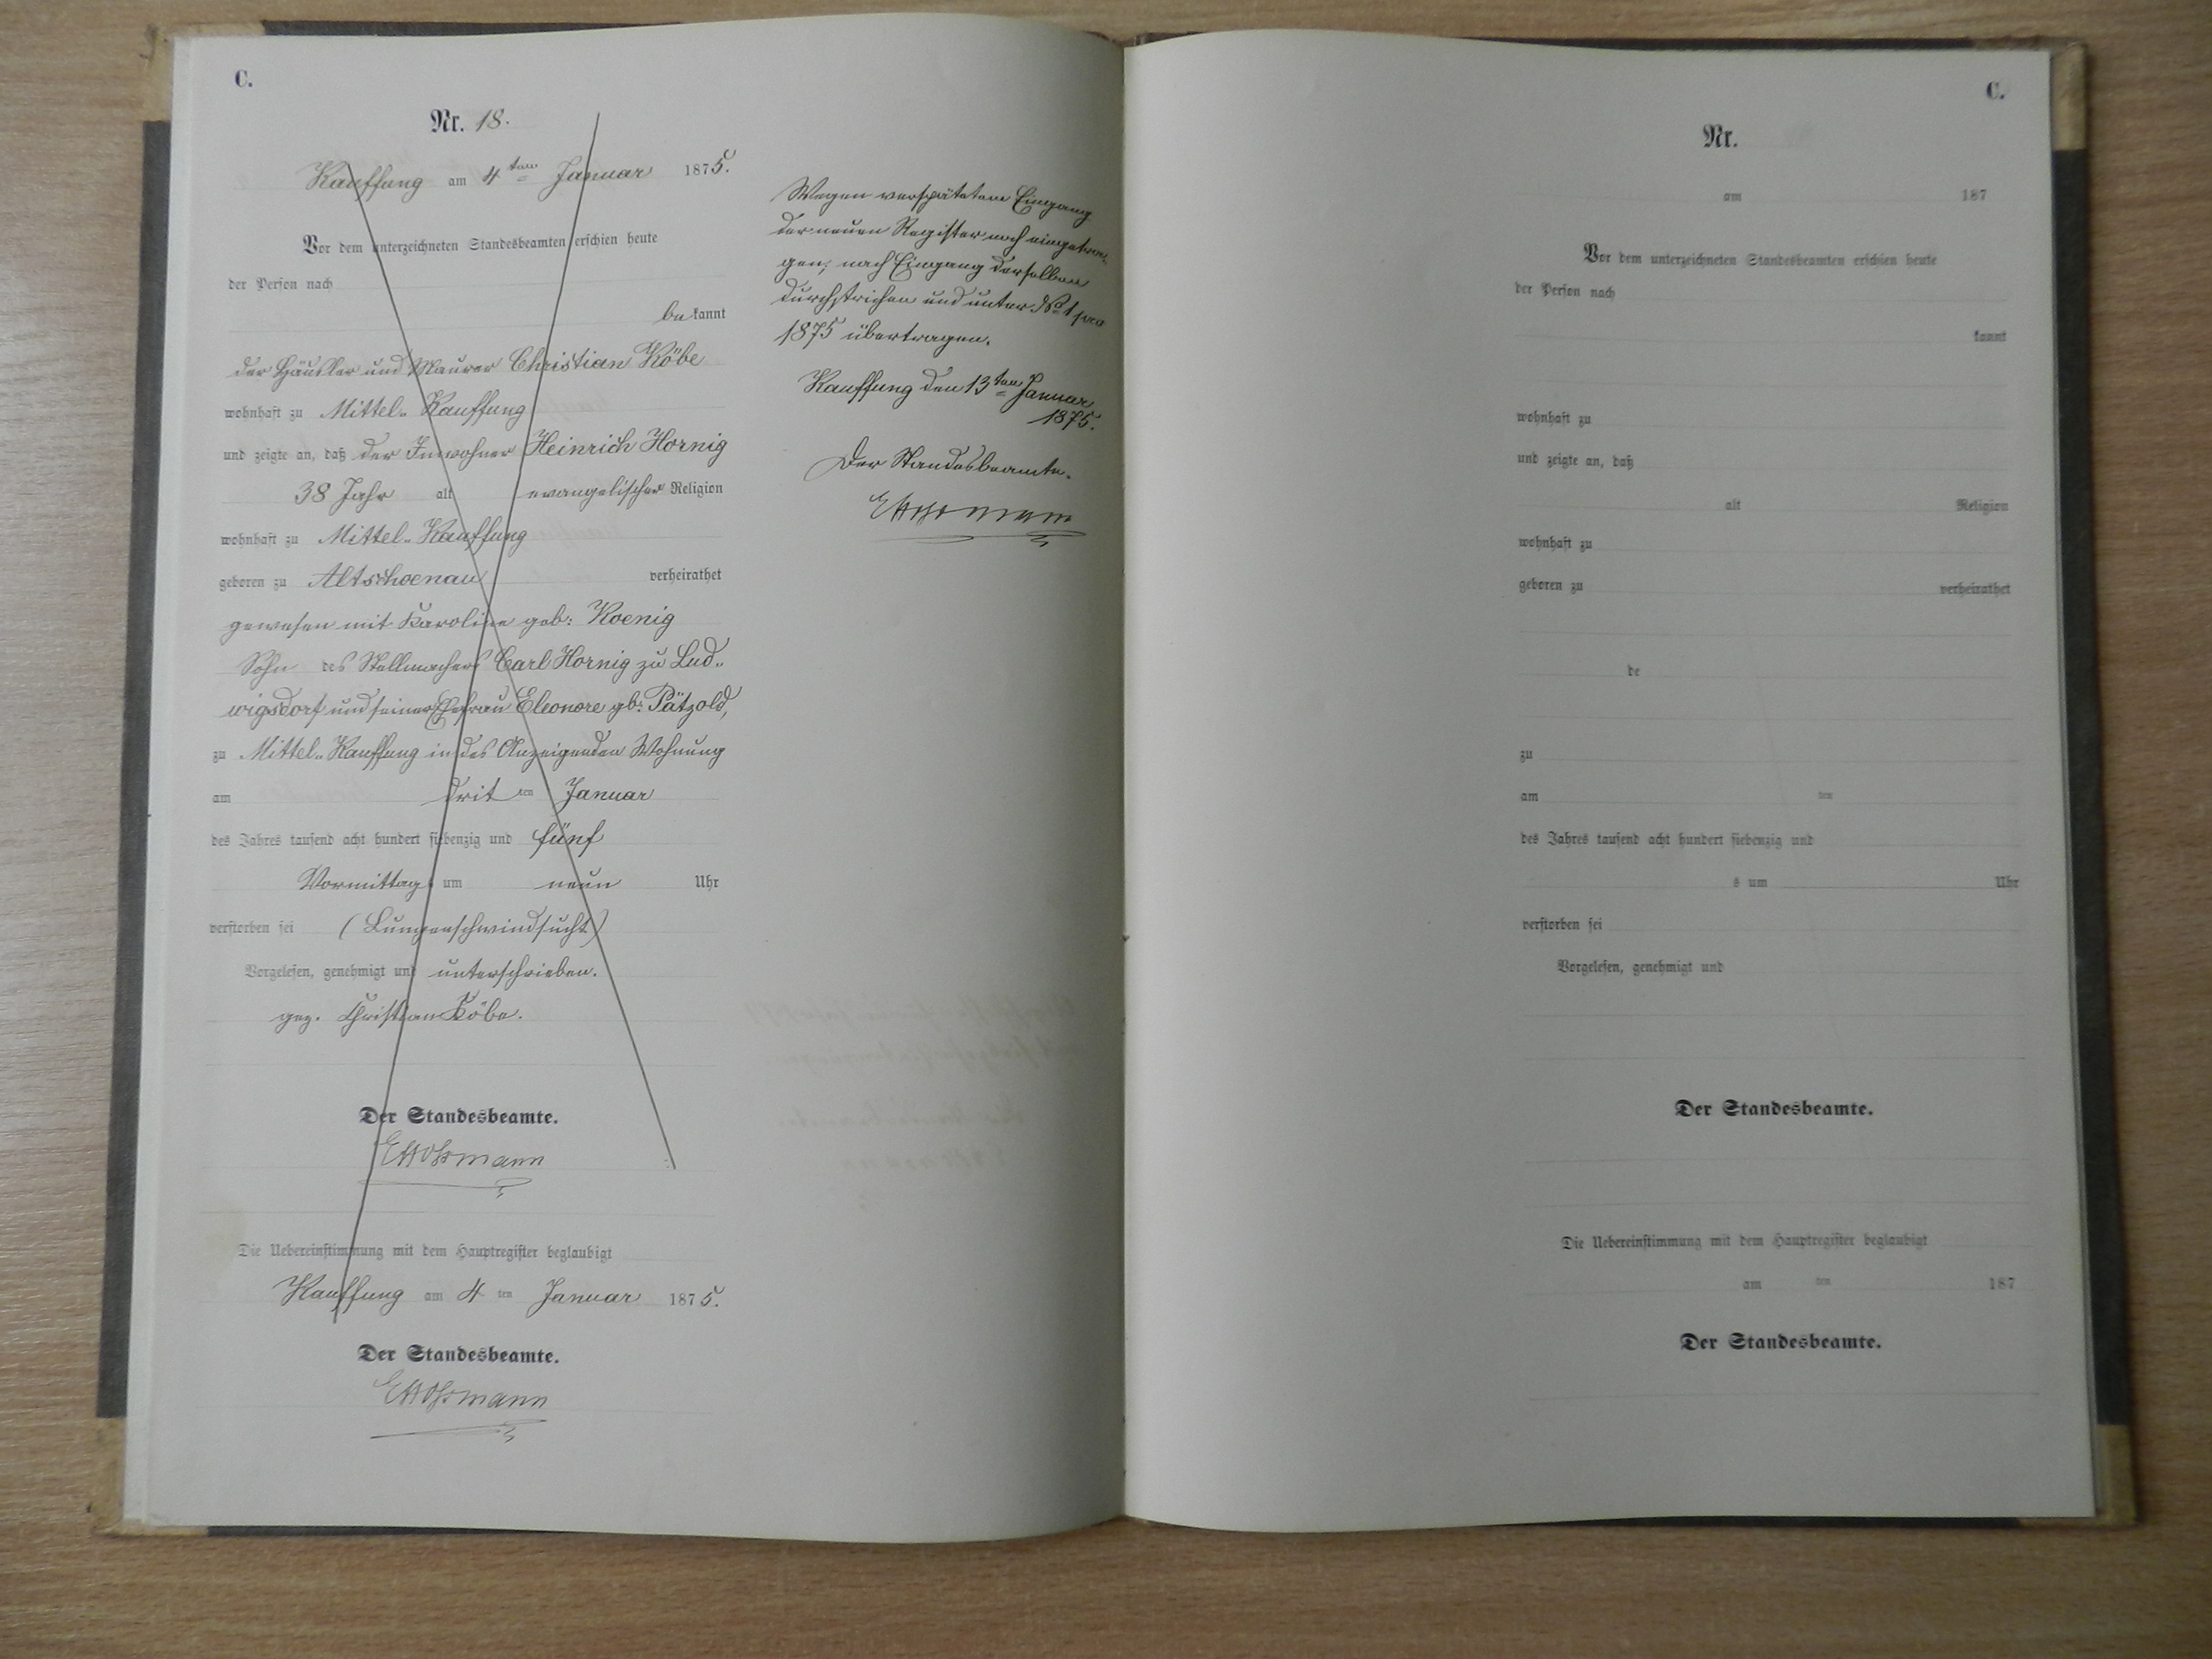 C.
Nr. 18.
Kauffung am 4ten Januar 1875.
Vor dem unterzeichneten Standesbeamten erschien heute
der Person nach
bekannt
der Häusler und Maurer Christian Köbe
wohnhaft zu Mittel-Kauffung
und zeigte an, daß der Inwohner Heinrich Hornig
38 Jahr alt evangelischer Religion
wohnhaft zu Mittel-Kauffung
geboren zu Altschoenau verheirathet
gewesen mit Karoline geb: Koenig
Sohn des Stellmachers Carl Hornig zu Lud-
wigsdorf und seiner Ehefrau Eleonore gb: Pätzold,
zu Mittel-Kauffung in des Anzeigenden Wohnung
am dritten Januar
des Jahres tausend acht hundert siebenzig und fünf
Vormittags um neun Uhr
verstorben sei (Lungenschwindsucht)
Vorgelesen, genehmigt und unterschrieben.
gez. Christian Köbe.
Der Standesbeamte.
Die Uebereinstimmung mit dem Hauptregister beglaubigt
Kauffung am 4ten Januar 1875.
Der Standesbeamte.
Wegen verspätetem Eingang
der neuen Register noch eingetra-
gen, nach Eingang derselben
durchstrichen und unter No 1 pro
1875 übertragen.
Kauffung den 13ten Januar
1875.
Der Standesbeamte.
C.
Nr.
am 187
Vor dem unterzeichneten Standesbeamten erschien heute
der Person nach
kannt
wohnhaft zu
und zeigte an, daß
alt Religion
wohnhaft zu
geboren zu verheirathet
de
zu
am ten
des Jahres tausend acht hundert siebenzig und
s um Uhr
verstorben sei
Vorgelesen, genehmigt und
Der Standesbeamte.
Die Uebereinstimmung mit dem Hauptregister beglaubigt
am ten 187
Der Standesbeamte.